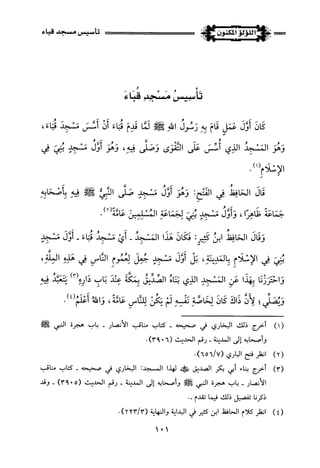 اللؤلؤ المكنون
تأسيس مسجد قباء
تَأْسِيسُ مَسْجِدِ قُبَاءَ
كَانَ أَوَّلَ عَمَلٍ قَامَ بِهِ رَسُولُ اللهِ ﷺ لَمَّا قَدِمَ قُبَاءَ أَنْ أَسَّسَ مَسْجِدَ قُبَاءَ،
وَهُوَ المَسْجِدُ الذِي أُسِّسَ عَلَى التَّقْوَى وَصَلَّى فِيهِ، وَهُوَ أَوَّلُ مَسْجِدٍ بُنِيَ فِي
الإِسْلَامِ(١).
قَالَ الحَافِظُ فِي الفَتْحِ: وَهُوَ أَوَّلُ مَسْجِدٍ صَلَّى النَّبِيُّ ﷺ فِيهِ بِأَصْحَابِهِ
جَمَاعَةً ظَاهِرًا، وَأَوَّلُ مَسْجِدٍ بُنِيَ لِجَمَاعَةِ المُسْلِمِينَ عَامَّةً(٢).
وَقَالَ الحَافِظُ ابنُ كَثِيرٍ: فَكَانَ هَذَا المَسْجِدُ ـ أَيْ مَسْجِدُ قُبَاءَ ـ أَوَّلَ مَسْجِدٍ
بُنِيَ فِي الإِسْلَامِ بِالمَدِينَةِ، بَلْ أَوَّلَ مَسْجِدٍ جُعِلَ لِعُمُومِ النَّاسِ فِي هَذِهِ المِلَّةِ،
وَاحْتَرَزْنَا بِهَذَا عَنِ المَسْجِدِ الذِي بَنَاهُ الصِّدِّيقُ بِمَكَّةَ عِنْدَ بَابِ دَارِهِ(٣) يَتَعَبَّدُ فِيهِ
وَيُصَلِّي؛ لِأَنَّ ذَاكَ كَانَ لِخَاصَّةِ نَفْسِهِ لَمْ يَكُنْ لِلنَّاسِ عَامَّةً، وَاللهُ أَعْلَمُ(٤).
(١) أخرج ذلك البخاري في صحيحه ـ كتاب مناقب الأنصار ـ باب هجرة النبي ﷺ
وأصحابه إلى المدينة ـ رقم الحديث (٣٩٠٦).
(٢) انظر فتح الباري (٦٥٦/٧).
(٣) أخرج بناء أبي بكر الصديق ﷺ لهذا المسجد: البخاري في صحيحه ـ كتاب مناقب
الأنصار ـ باب هجرة النبي ﷺ وأصحابه إلى المدينة ـ رقم الحديث (٣٩٠٥) ـ وقد
ذكرنا تفصيل ذلك فيما تقدم ..
(٤) انظر كلام الحافظ ابن كثير في البداية والنهاية (٢٢٣/٣).
١٠١